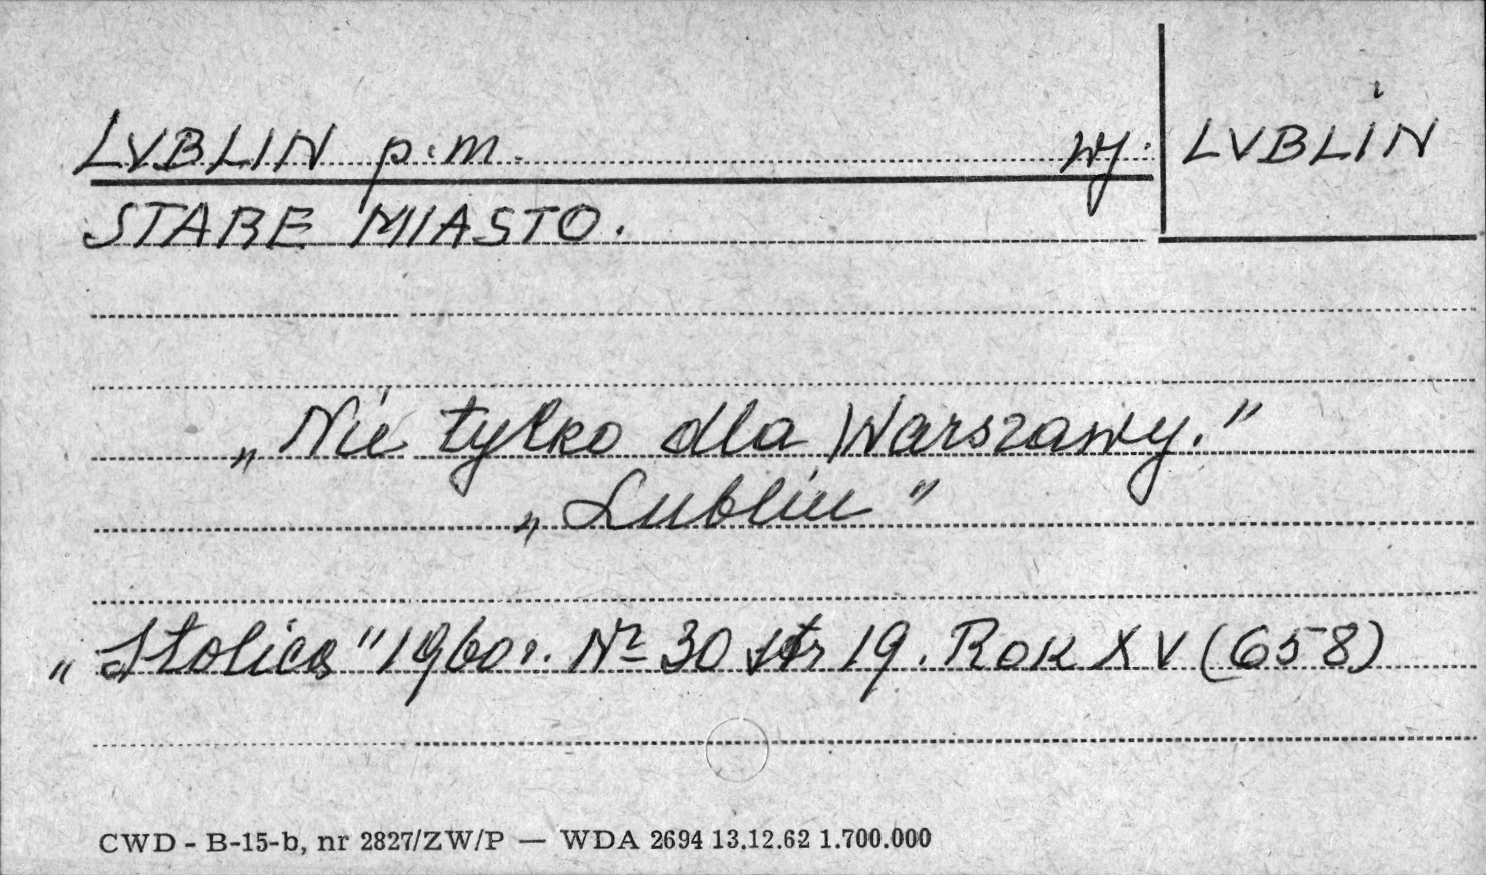 LVBLIN p.m. wj. LVBLIN
STARE MIASTO.
„Nie tylko dla Warszawy.”
„Lublin”
„Stolica” 1960r. Nr 30 str 19. Rok XV (658)
CWD - B-15-b, nr 2827/ZW/P — WDA 2694 13.12.62 1.700.000